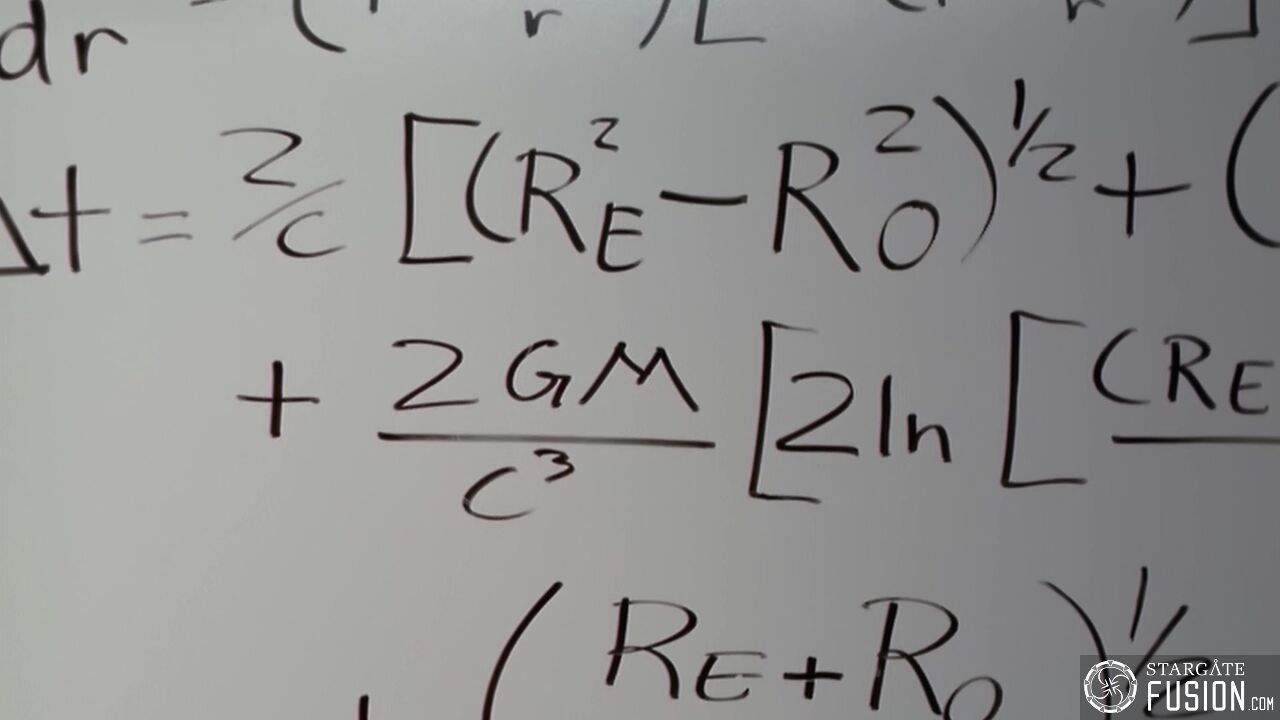 dr
Δt = 2/c [(R_E^2 - R_O^2)^1/2 + (
+ 2GM/c^3 [2 ln [(R_E
(R_E + R_O)^1/2
STARGATE
FUSION.COM